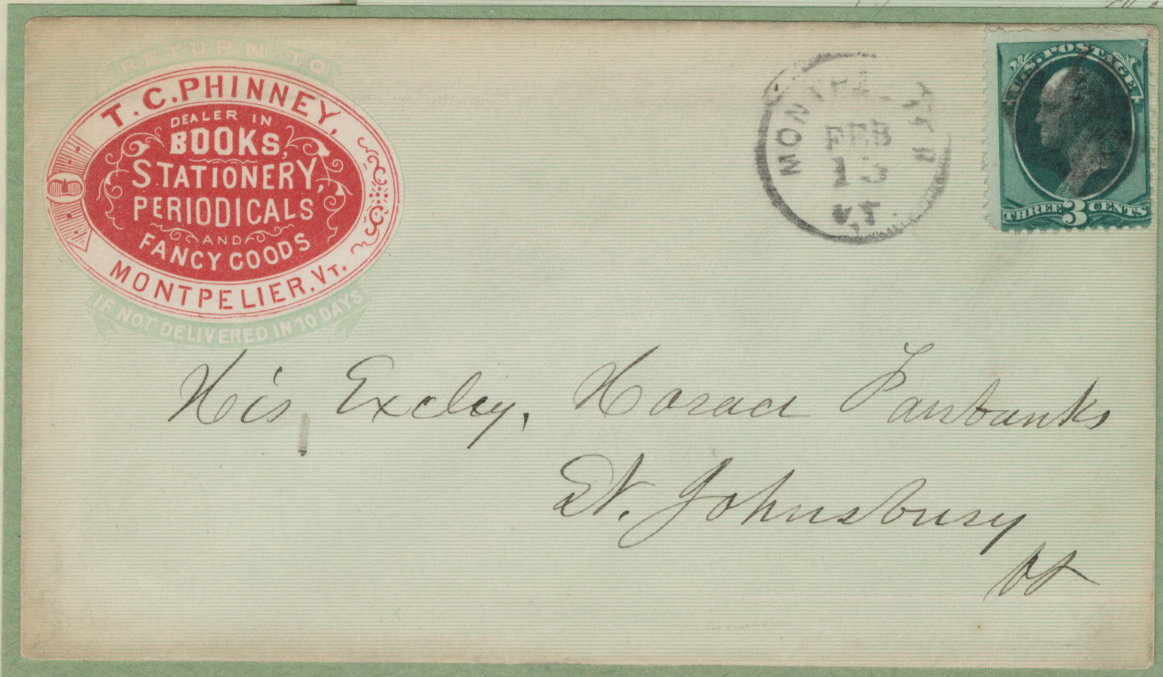 RETURN TO
T. C. PHINNEY,
DEALER IN
BOOKS,
STATIONERY,
PERIODICALS
AND
FANCY GOODS
MONTPELIER, VT.
IF NOT DELIVERED IN 10 DAYS
FEB
13
VT
U.S. POSTAGE
THREE 3 CENTS
His Excley, Horace Fairbanks
St. Johnsbury
Vt